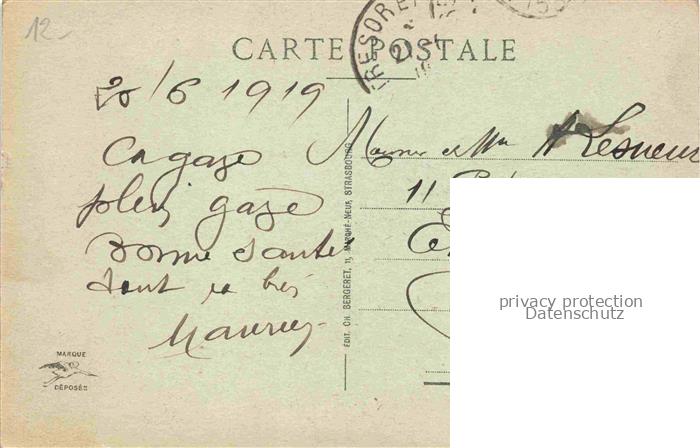 12-
TRESOR ET
CARTE POSTALE
20/6 1919
Ca gaze
plein gaze
Bonne santé
tout va très
Maurice
Monsieur et Mme A Lesueur
11
ÉDIT. CH. BERGERET, 11, MARCHÉ-NEUF, STRASBOURG
MARQUE
DÉPOSÉE
privacy protection
Datenschutz